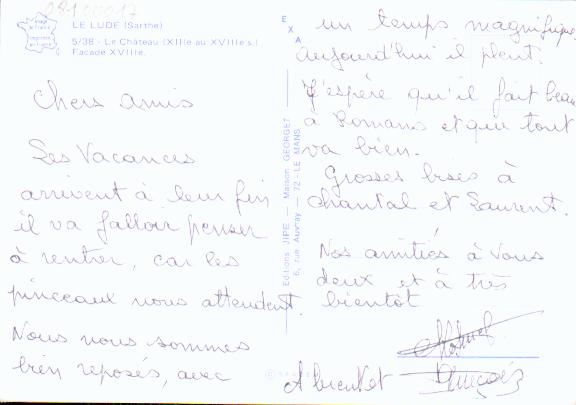 LE LUDE (Sarthe)
5/38 - Le Château (XIIe au XVIIIe s.)
Façade XVIIIe.
Chers amis
Les Vacances
arrivent à leur fin
il va falloir penser
à rentrer, car les
pinceaux nous attendent.
Nous nous sommes
bien reposés, avec
EXA
Editions JIPE — Maison GEORGET
6, rue Auvray — 72 - LE MANS
un temps magnifique
Aujourd'hui il pleut.
J'espère qu'il fait beau
à Romans et que tout
va bien.
Grosses bises à
Chantal et Laurent.
Nos amitiés à Vous
deux et à très
bientôt
A bientôt